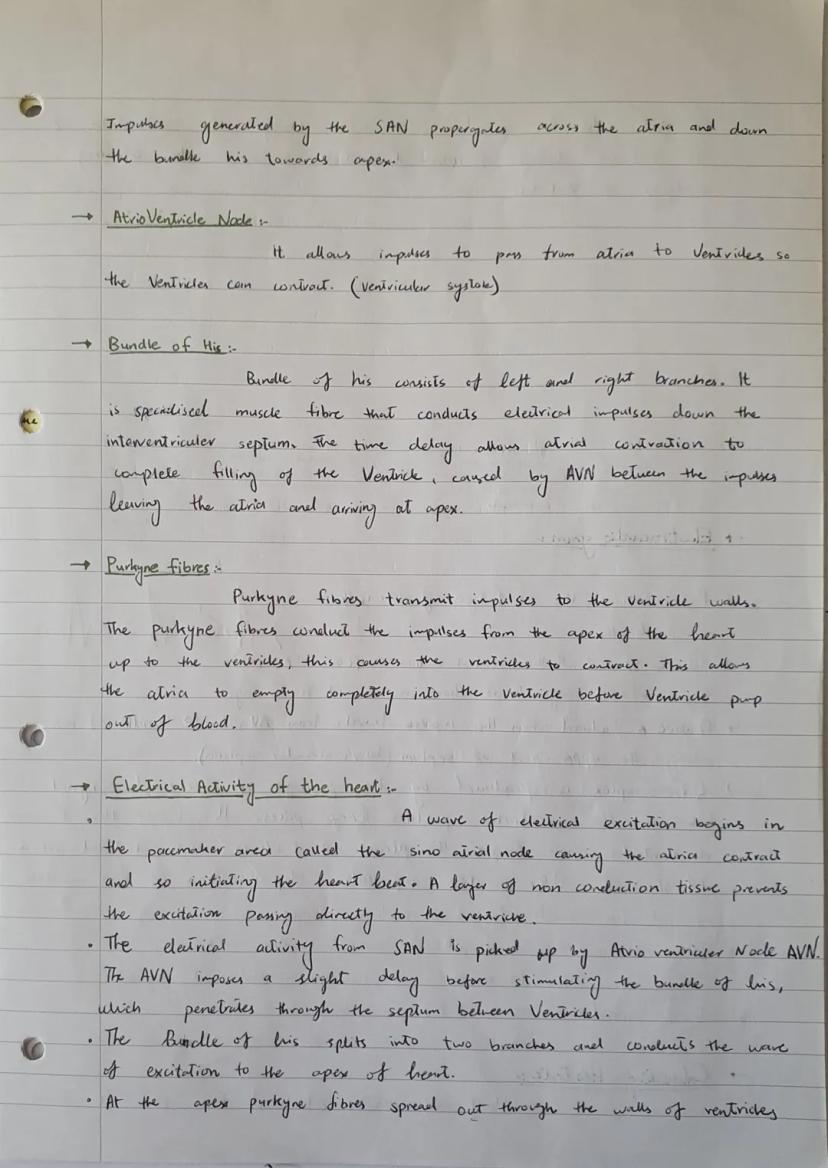 Impulses generated by the SAN propergates across the atria and down
the bundle his towards apex.
→ AtrioVentricle Node :-
It allows impulses to pass from atria to Ventricles so
the Ventricles can contract. (Ventricular systole)
→ Bundle of His :-
Bundle of his consists of left and right branches. It
is specialised muscle fibre that conducts electrical impulses down the
interventriculer septum. The time delay allows atrial contration to
complete filling of the Ventricle, caused by AVN between the impulses
leaving the atria and arriving at apex.
→ Purkyne fibres :-
Purkyne fibres transmit impulses to the ventricle walls.
The purkyne fibres conduct the impulses from the apex of the heart
up to the ventricles, this causes the ventricles to contract. This allows
the atria to empty completely into the ventricle before Ventricle pump
out of blood.
→ Electrical Activity of the heart :-
• A wave of electrical excitation begins in
the pacemaker area called the sino atrial node causing the atria contract
and so initiating the heart beat. A layer of non conduction tissue prevents
the excitation passing directly to the ventricle.
• The electrical activity from SAN is picked up by Atrio ventriculer Node AVN.
The AVN imposes a slight delay before stimulating the bundle of his,
which penetrates through the septum between Ventricles.
• The Bundle of his splits into two branches and conducts the wave
of excitation to the apex of heart.
• At the apex purkyne fibres spread out through the walls of ventricles